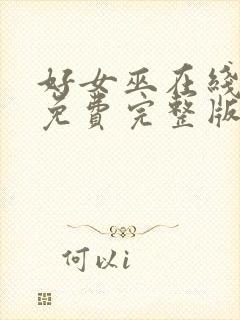 好女巫在线
免费完整版
何以i